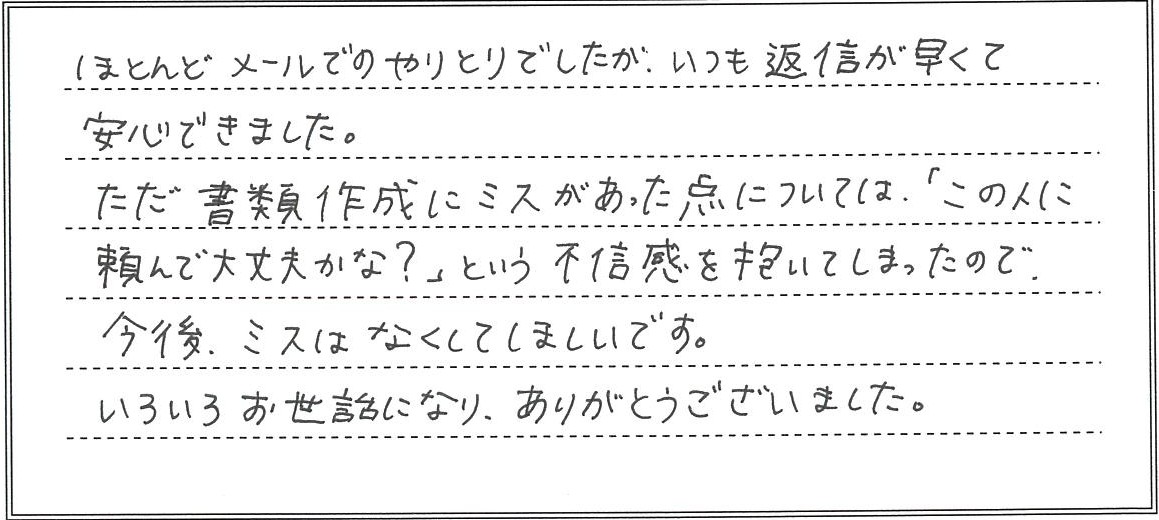 ほとんどメールでのやりとりでしたが、いつも返信が早くて
安心できました。
ただ書類作成にミスがあった点については、「この人に
頼んで大丈夫かな?」という不信感を抱いてしまったので、
今後、ミスはなくしてほしいです。
いろいろお世話になり、ありがとうございました。